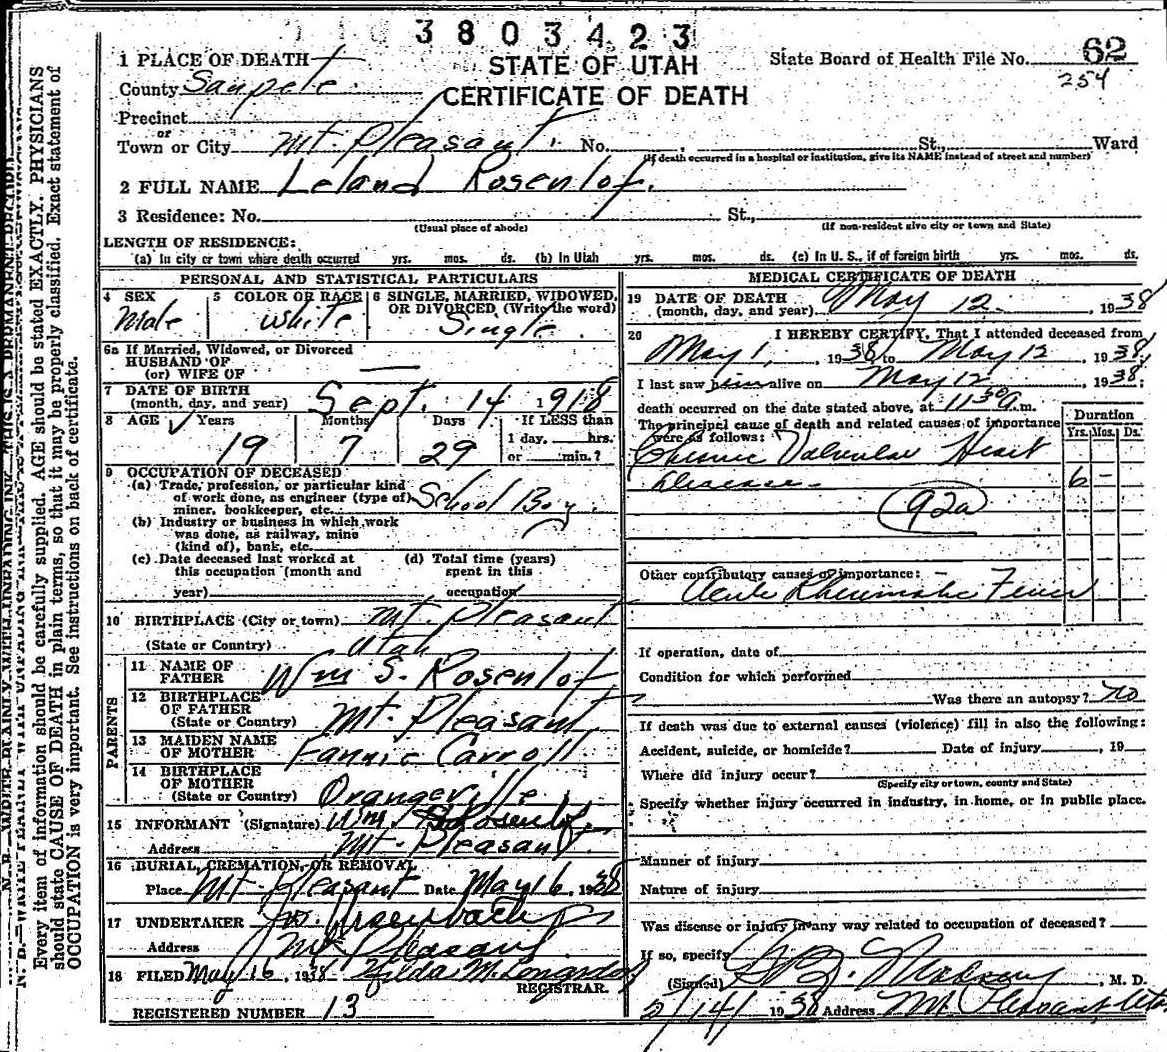 3803423
STATE OF UTAH
CERTIFICATE OF DEATH
State Board of Health File No. 62
254
1 PLACE OF DEATH
County Sanpete
Precinct
or
Town or City Mt. Pleasant. No. St., Ward
(If death occurred in a hospital or institution, give its NAME instead of street and number)
2 FULL NAME Leland Rosenlof.
3 Residence: No. St.,
(Usual place of abode) (If non-resident give city or town and State)
LENGTH OF RESIDENCE:
(a) In city or town where death occurred yrs. mos. ds. (b) In Utah yrs. mos. ds. (c) In U. S., if of foreign birth yrs. mos. ds.
PERSONAL AND STATISTICAL PARTICULARS
4 SEX Male
5 COLOR OR RACE White
6 SINGLE, MARRIED, WIDOWED, OR DIVORCED (Write the word) Single
6a If Married, Widowed, or Divorced
HUSBAND OF
(or) WIFE OF
7 DATE OF BIRTH
(month, day, and year) Sept. 14 1918
8 AGE Years Months Days If LESS than
19 7 29 1 day. hrs.
or min.?
9 OCCUPATION OF DECEASED
(a) Trade, profession, or particular kind
of work done, as engineer (type of) School Boy.
miner, bookkeeper, etc.
(b) Industry or business in which work
was done, as railway, mine
(kind of), bank, etc.
(c) Date deceased last worked at
this occupation (month and
year)
(d) Total time (years)
spent in this
occupation
10 BIRTHPLACE (City or town) Mt. Pleasant
(State or Country) Utah
PARENTS
11 NAME OF
FATHER Wm S. Rosenlof
12 BIRTHPLACE
OF FATHER
(State or Country) Mt. Pleasant
13 MAIDEN NAME
OF MOTHER Fannie Carroll
14 BIRTHPLACE
OF MOTHER
(State or Country) Orangeville
15 INFORMANT (Signature) Wm. S Rosenlof
Address Mt. Pleasant.
16 BURIAL, CREMATION, OR REMOVAL
Place Mt. Pleasant Date May 16, 1938
17 UNDERTAKER
Address Mt Pleasant
18 FILED May 16, 1938 Hilda M.
REGISTRAR.
REGISTERED NUMBER 13
MEDICAL CERTIFICATE OF DEATH
19 DATE OF DEATH
(month, day, and year) May 12. , 1938
20 I HEREBY CERTIFY, That I attended deceased from
May 1, 1938, to May 12, 1938
I last saw him alive on May 12, 1938
death occurred on the date stated above, at 11 30 a.m.
The principal cause of death and related causes of importance
were as follows:
Duration
Yrs. Mos. Ds.
Chronic Valvular Heart
Disease- 6 -
92a
Other contributory causes of importance:
Acute Rheumatic Fever
If operation, date of
Condition for which performed
Was there an autopsy? no
If death was due to external causes (violence) fill in also the following:
Accident, suicide, or homicide? Date of injury , 19
Where did injury occur?
(Specify city or town, county and State)
Specify whether injury occurred in industry, in home, or in public place.
Manner of injury
Nature of injury
Was disease or injury in any way related to occupation of deceased?
If so, specify
(Signed) , M. D.
5/14/ 1938 Address Mt Pleasant Utah
Every item of information should be carefully supplied. AGE should be stated EXACTLY. PHYSICIANS
should state CAUSE OF DEATH in plain terms, so that it may be properly classified. Exact statement of
OCCUPATION is very important. See instructions on back of certificate.